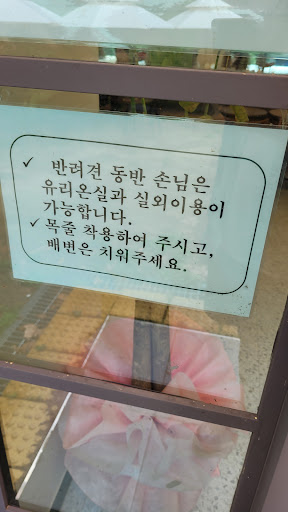 ✓ 반려견 동반 손님은
유리온실과 실외이용이
가능합니다.
✓ 목줄 착용하여 주시고,
배변은 치워주세요.